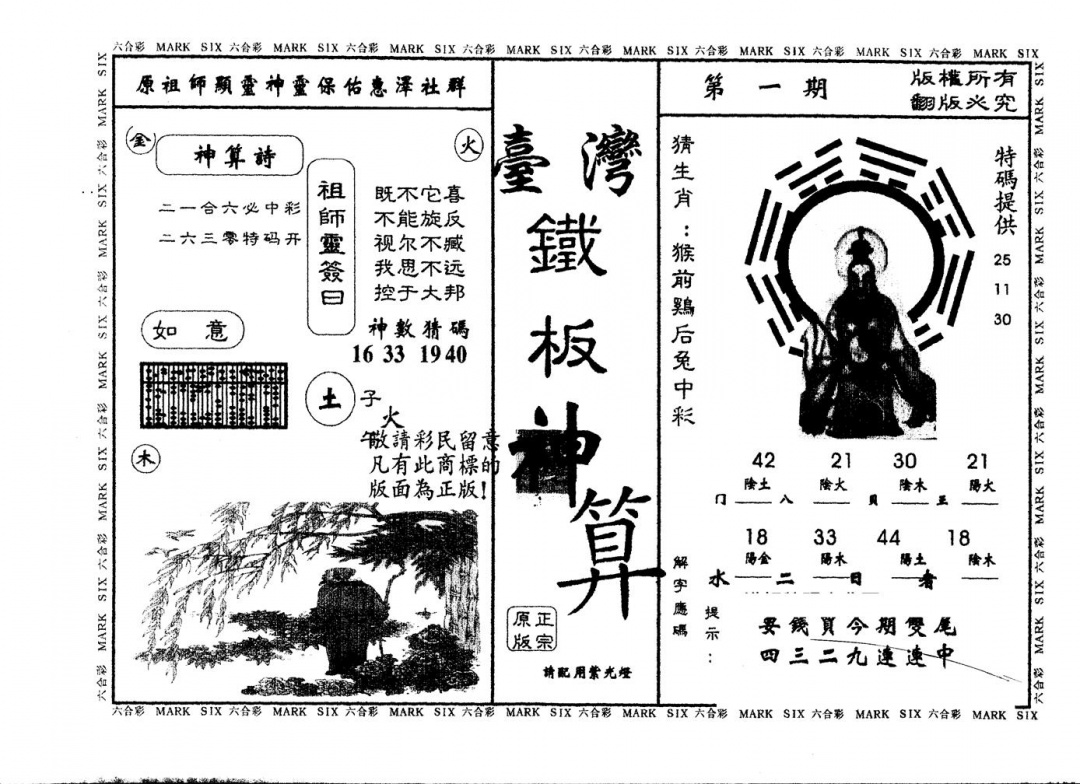 六合彩 MARK SIX 六合彩 MARK SIX 六合彩 MARK SIX 六合彩 MARK SIX 六合彩 MARK SIX 六合彩 MARK SIX 六合彩 MARK SIX 六合彩 MARK SIX
原祖師顯靈神靈保佑惠澤社群
金
火
神算詩
二一合六必中彩
二六三零特码开
祖師靈簽曰
既不它喜
不能旋反
视尔不臧
我思不远
控于大邦
神數猜碼
16 33 19 40
如意
土
子
火
午
敬請彩民留意
凡有此商標的
版面為正版!
木
臺灣
鐵
板
神
算
正宗
原版
請配用紫光燈
第一期
版權所有
翻版必究
猜生肖:猴前鷄后兔中彩
特碼提供
25
11
30
42 21 30 21
陰土 陰火 陰木 陽火
八
18 33 44 18
陽金 陽木 陽土 陰木
水 二 日
解字應碼
提示:
要錢買今期雙尾
四三二九連連中
六合彩 MARK SIX 六合彩 MARK SIX 六合彩 MARK SIX 六合彩 MARK SIX 六合彩 MARK SIX 六合彩 MARK SIX 六合彩 MARK SIX 六合彩 MARK SIX